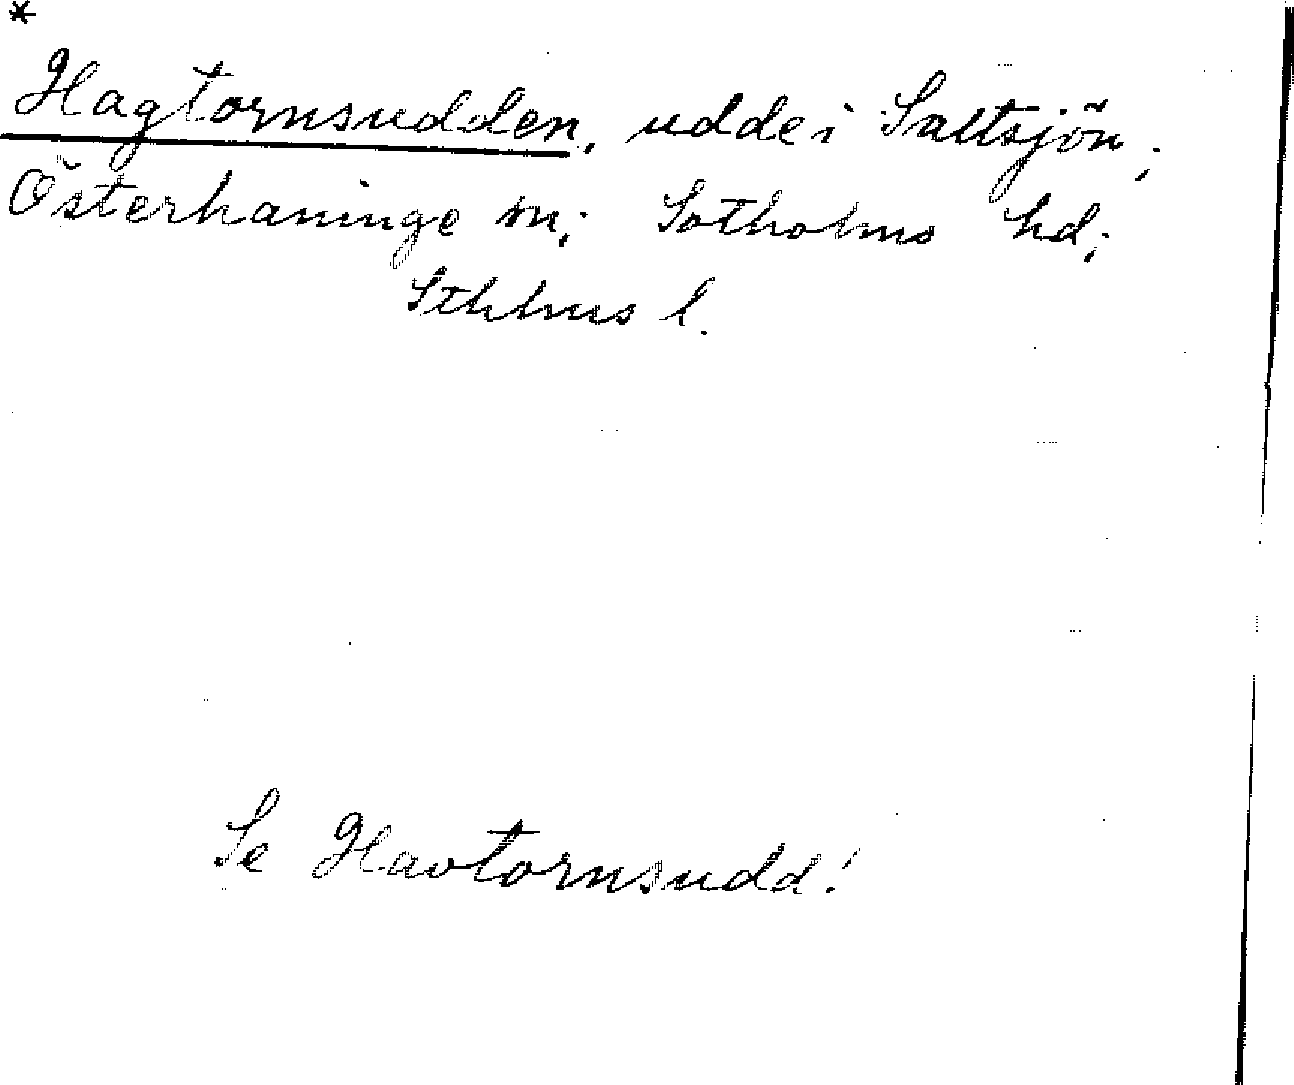 *
Hagtornsudden, udde i Saltsjön;
Österhaninge sn; Sotholms hd;
Sthlms l.
Se Havtornsudd!